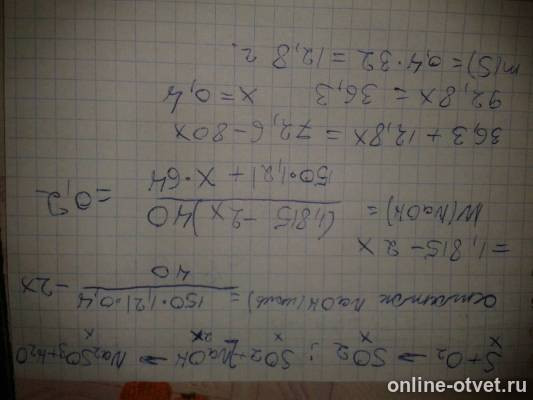 S + O2 → SO2 ; SO2 + 2NaOH → Na2SO3 + H2O
x x x 2x x
остаток NaOH (моль) = 150·1,21·0,4 / 40 - 2x
= 1,815 - 2x
W(NaOH) = (1,815 - 2x)40 / 150·1,21 + x·64 = 0,2
36,3 + 12,8x = 72,6 - 80x
92,8x = 36,3 x = 0,4
m(S) = 0,4·32 = 12,8 г.
online-otvet.ru